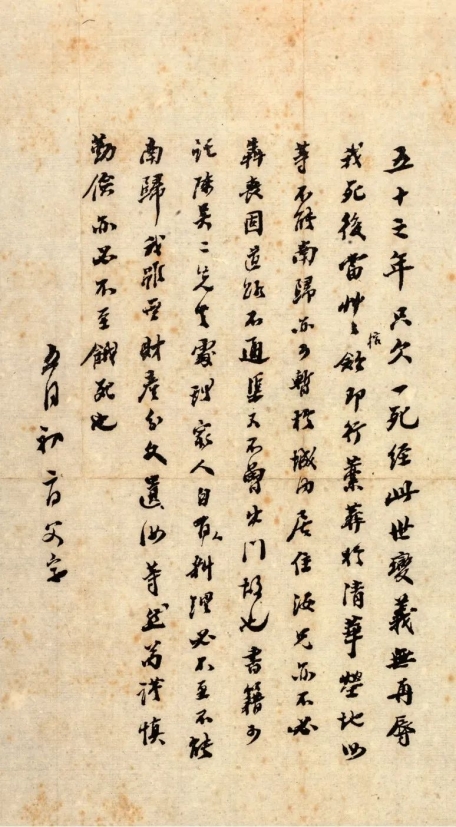 五十之年只欠一死經此世變義無再辱
我死後當艸々棺殮即行藁葬於清華塋地汝
等不能南歸亦可暫於城內居住汝兄亦不必
犇喪因道路不通渠又不曾出門故也書籍可
託陳吳二先生處理家人自有人料理必不至不能
南歸我雖無財產分文遺汝等然苟謹慎
勤儉亦必不至餓死也
五月初二日父字